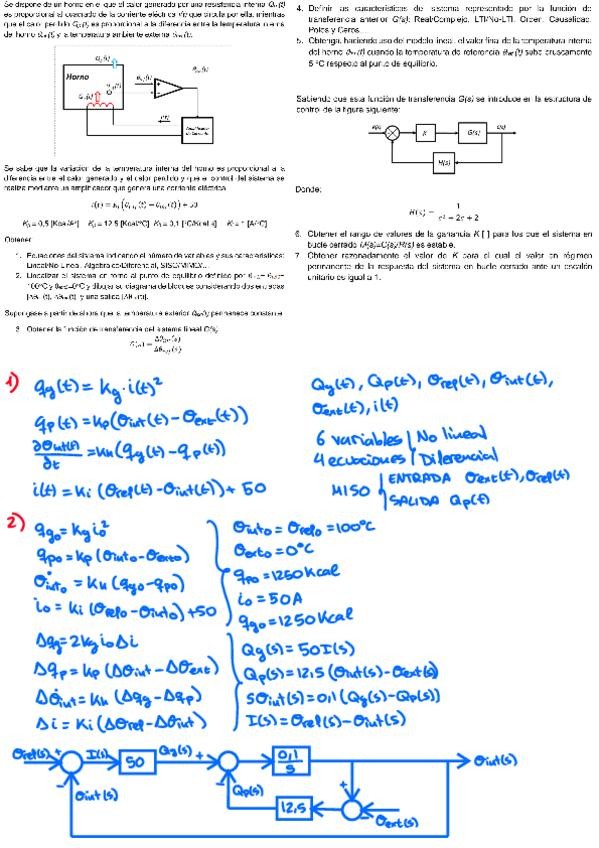 Se dispone de un horno en el que el calor generado por una resistencia interna Qg(t)
es proporcional al cuadrado de la corriente eléctrica i(t) que circula por ella, mientras
que el calor perdido Qp(t) es proporcional a la diferencia entre la temperatura interna
del horno θint(t) y la temperatura ambiente externa θext(t).
Horno
Se sabe que la variación de la temperatura interna del horno es proporcional a la
diferencia entre el calor generado y el calor perdido y que el control del sistema se
realiza mediante un amplificador que genera una corriente eléctrica
i(t) = Ki (θref(t) − θint(t)) + 50
Obtener
1. Ecuaciones del sistema indicando el número de variables y sus características:
Lineal/No Lineal, Algebraico/Diferencial, SISO/MIMO/...
2. Linealizar el sistema en torno al punto de equilibrio definido por
100°C y θext=0°C y dibujar su diagrama de bloques considerando dos entradas
Supóngase a partir de ahora que la temperatura exterior θext(t) permanece constante
3. Obtener la función de transferencia del sistema lineal G(s)
4. Definir las características del sistema representado por la función de
transferencia anterior G(s): Real/Complejo, LTI/No-LTI, Orden, Causalidad,
Polos y Ceros.
5. Obtenga, haciendo uso del modelo lineal, el valor final de la temperatura interna
del horno θint(t) cuando la temperatura de referencia θref(t) sube bruscamente
5 °C respecto al punto de equilibrio.
Sabiendo que esta función de transferencia G(s) se introduce en la estructura de
control de la figura siguiente:
K
G(s)
H(s)
Donde:
6. Obtener el rango de valores de la ganancia K [ ] para los que el sistema en
bucle cerrado M(s)=C(s)/R(s) es estable.
7. Obtener razonadamente el valor de K para el cual el valor en régimen
permanente de la respuesta del sistema en bucle cerrado ante un escalón
unitario es igual a 1.
1) qg(t) = Kg·i(t)²
qp(t) = Kp(θint(t) − θext(t))
∂θint(t)/∂t = Kh(qg(t) − qp(t))
i(t) = Ki (θref(t) − θint(t)) + 50
Qg(t), Qp(t), θref(t), θint(t),
θext(t), i(t)
6 variables | No lineal
4 ecuaciones | Diferencial
MISO | ENTRADA θext(t), θref(t)
SALIDA Qp(t)
2) qgo = Kg io²
qpo = Kp (θinto − θexto)
θ̇into = Kh (qgo − qpo)
io = Ki (θrefo − θinto) + 50
θinto = θrefo = 100°C
θexto = 0°C
qpo = 1250 Kcal
io = 50A
qgo = 1250 Kcal
Δqg = 2Kg io Δi
Δqp = Kp (Δθint − Δθext)
Δθ̇int = Kh (Δqg − Δqp)
Δi = Ki (Δθref − Δθint)
Qg(s) = 50 I(s)
Qp(s) = 12,5 (θint(s) − θext(s))
sθint(s) = 0,1 (Qg(s) − Qp(s))
I(s) = θref(s) − θint(s)
θref(s) + I(s) 50 Qg(s) + 0,1/s θint(s)
− θint(s) − Qp(s) 12,5 + − θext(s)